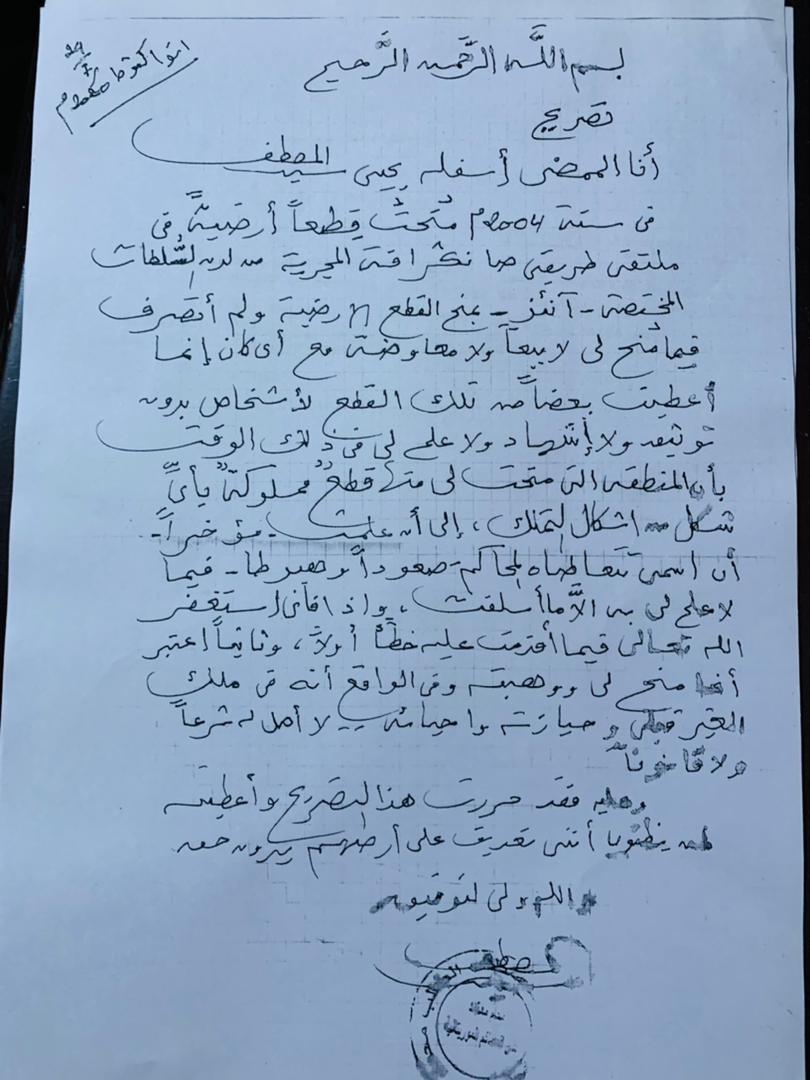 بسم اللَّه الرَّحمن الرَّحيم
تصريح
أنا الممضى أسفله يحيى سيد المصطف
فى سنة 2004م مُنحتُ قِطعاً أرضيةً فى
ملتقى طريقى صانكرافة المجرية من لدن السُّلطات
المختصة - آنئذ - بمنح القطع الارضية ولم أتصرف
فيما مُنح لى لا بيعاً ولا معاوضة مع أي كان إنما
أعطيت بعضاً من تلك القطع لأشخاص بدون
توثيق ولا إشهاد ولا علم لى فى ذلك الوقت
بأن المنطقة التى منحت لى منها قطعٌ مملوكةٌ بأيِّ
شكل من اشكال التملك، إلى أن علمت - مؤخراً -
أن اسمى تتعاطاه المحاكم صعوداً وهبوطا - فيما
لا علم لى به إلَّا ما أسلفت، وإذا فإنى استغفر
الله تعالى فيما أقدمت عليه خطأ أولاً، وثانياً اعتبر
أنما منح لى ووهبته وفى الواقع أنه فى ملك
الغير قبلى وحيازته واحيائه لا أصل له شرعاً
ولا قانوناً
وعليه فقد حررت هذا التصريح وأعطيته
لمن يظنون أننى تعديت على أرضهم بدون حق
والله ولى التوفيق